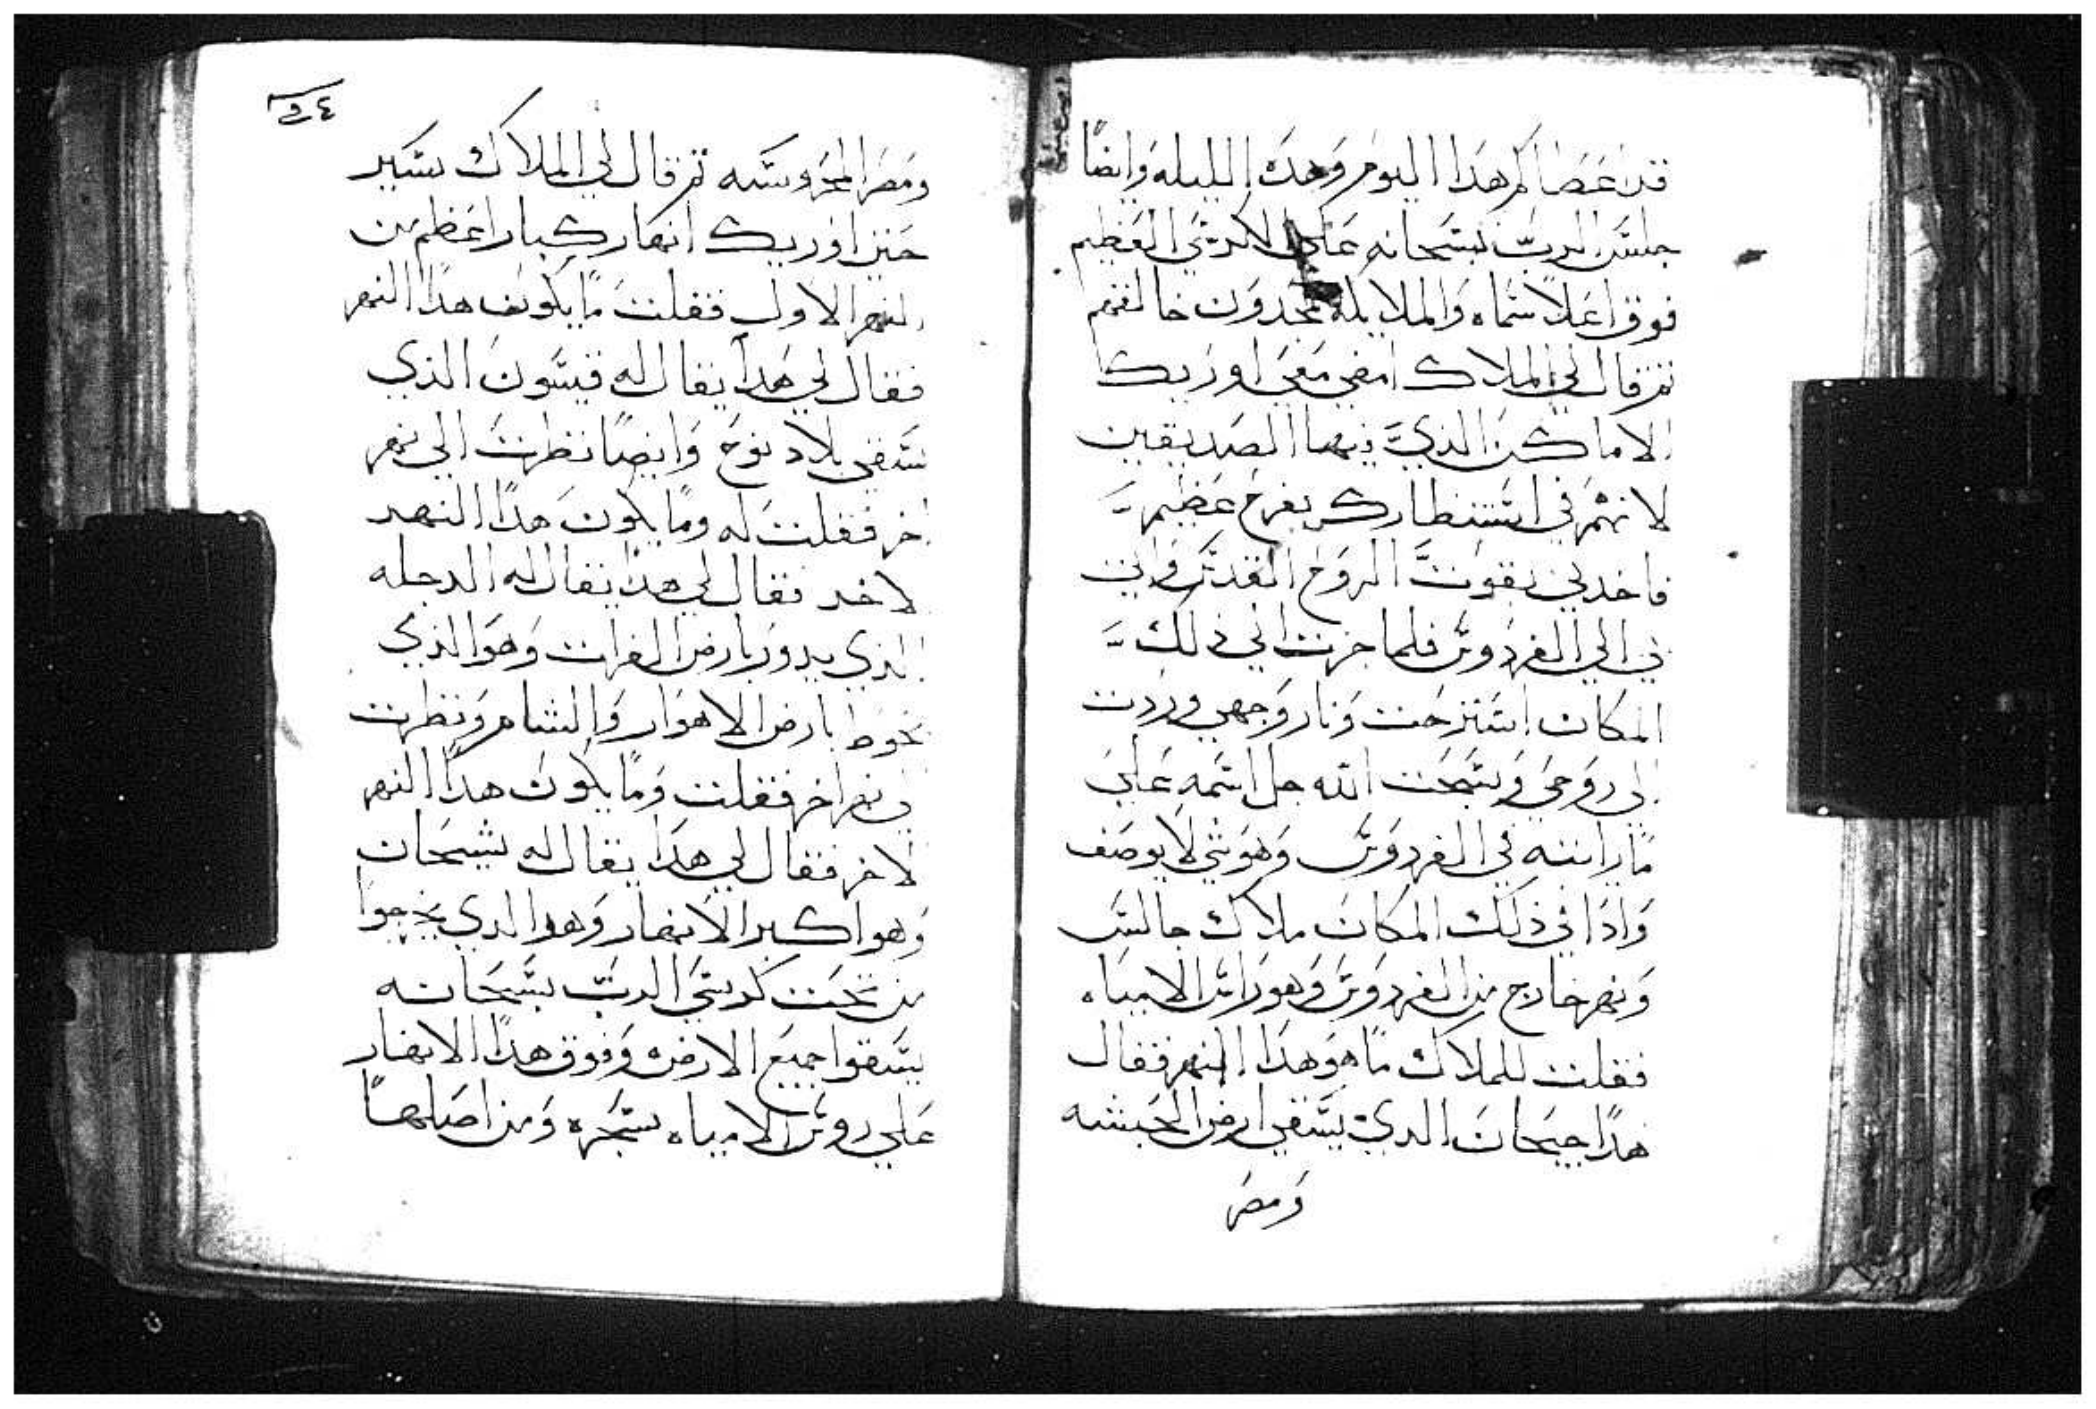 قد اعصاكم هدا اليوم وهده الليله وايضًا
جلس الرب سبحانه على الكرسي العظيم
فوق اعلا سماه والملايكه يمجدون خالقهم
تم قال لي الملاك امضي معي اوريك
الاماكن الذي فيها الصديقين
لانهم في استنطارك بفرح عظيم
فاخدني بقوت الروح القدس واتى
بي الي الفردوس فلما جزت الي ذلك
المكان استنزحت ونار وجهي وردت
الي روحي وسبحت الله جل اسمه علي
ما رايته في الفردوس وهو شي لا يوصف
واذا في ذلك المكان ملاك جالس
ونهر خارج من الفردوس وهو راس الامياه
فقلت للملاك ما هو هدا النهر فقال
هدا جيحان الدي يسقي ارض الحبشه
ومصر
٩٤
ومصر المحروسه تم قال لي الملاك سير
حتي اوريك انهار كبار اعظم من
النهر الاول فقلت ما يكون هدا النهر
فقال لي هدا يقال له فيسون الذي
يسقي بلاد نوح وايضًا نظرت الي نهر
اخر فقلت له وما يكون هدا النهر
الاخر فقال لي هدا يقال له الدجله
الدي يدور بارض الفرات وهو الذي
يحوط بارض الاهوار والشام ونظرت
الي نهر اخر فقلت وما يكون هدا النهر
الاخر فقال لي هدا يقال له سيحان
وهو اكبر الانهار وهو الدي يخرجوا
من تحت كرسي الرب سبحانه
يسقوا جميع الارض وفوق هدا الانهار
علي روس الامياه سجره ومن اصلها